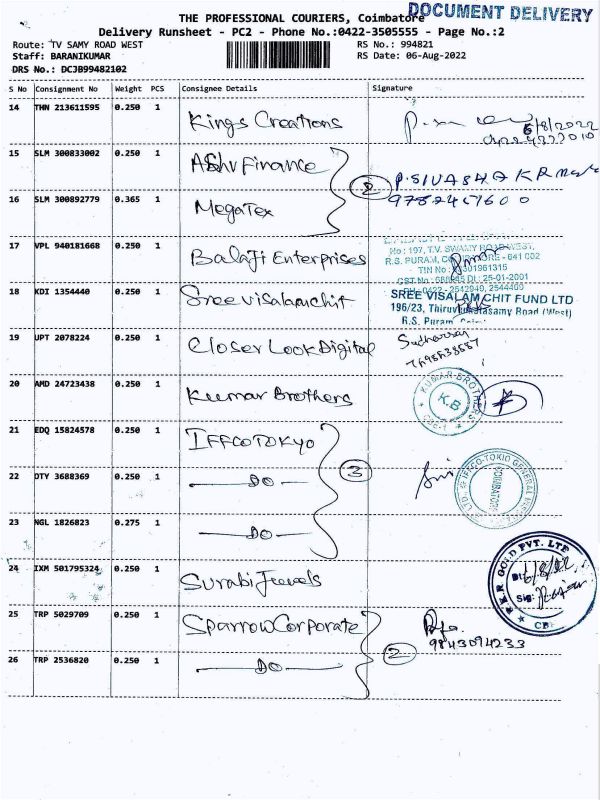 DOCUMENT DELIVERY
THE PROFESSIONAL COURIERS, Coimbatore
Delivery Runsheet - PC2 - Phone No.:0422-3505555 - Page No.:2
Route: TV SAMY ROAD WEST
RS No.: 994821
Staff: BARANIKUMAR
RS Date: 06-Aug-2022
DRS No.: DCJB99482102
S No Consignment No Weight PCS Consignee Details Signature
14 THN 213611595 0.250 1 Kings Creations
6/8/2022
15 SLM 300833002 0.250 1 Ashv Finance
2
16 SLM 300892779 0.365 1 MegaTex
17 VPL 940181668 0.250 1 Balaji Enterprises
No: 197, T.V. SWAMY ROAD WEST,
R.S. PURAM, - 641 002
18 KDI 1354440 0.250 1 Sree Visalamchit
SREE VISALAM CHIT FUND LTD
196/23, (West)
R.S. Puram
19 UPT 2078224 0.250 1 Closer Look Digital
20 AMD 24723438 0.250 1 Kumar Brothers
KUMAR BROTHERS
K.B
CBE-1
21 EDQ 15824578 0.250 1 IFFCOTOKYO
3
22 DTY 3688369 0.250 1 DO
IFFCO-TOKIO GENERAL
23 NGL 1826823 0.275 1 DO
24 IXM 501795324 0.250 1 Surabi Jewels
GOLD PVT. LTD
25 TRP 5029709 0.250 1 Sparrow Corporate
9843094233
2
26 TRP 2536820 0.250 1 DO